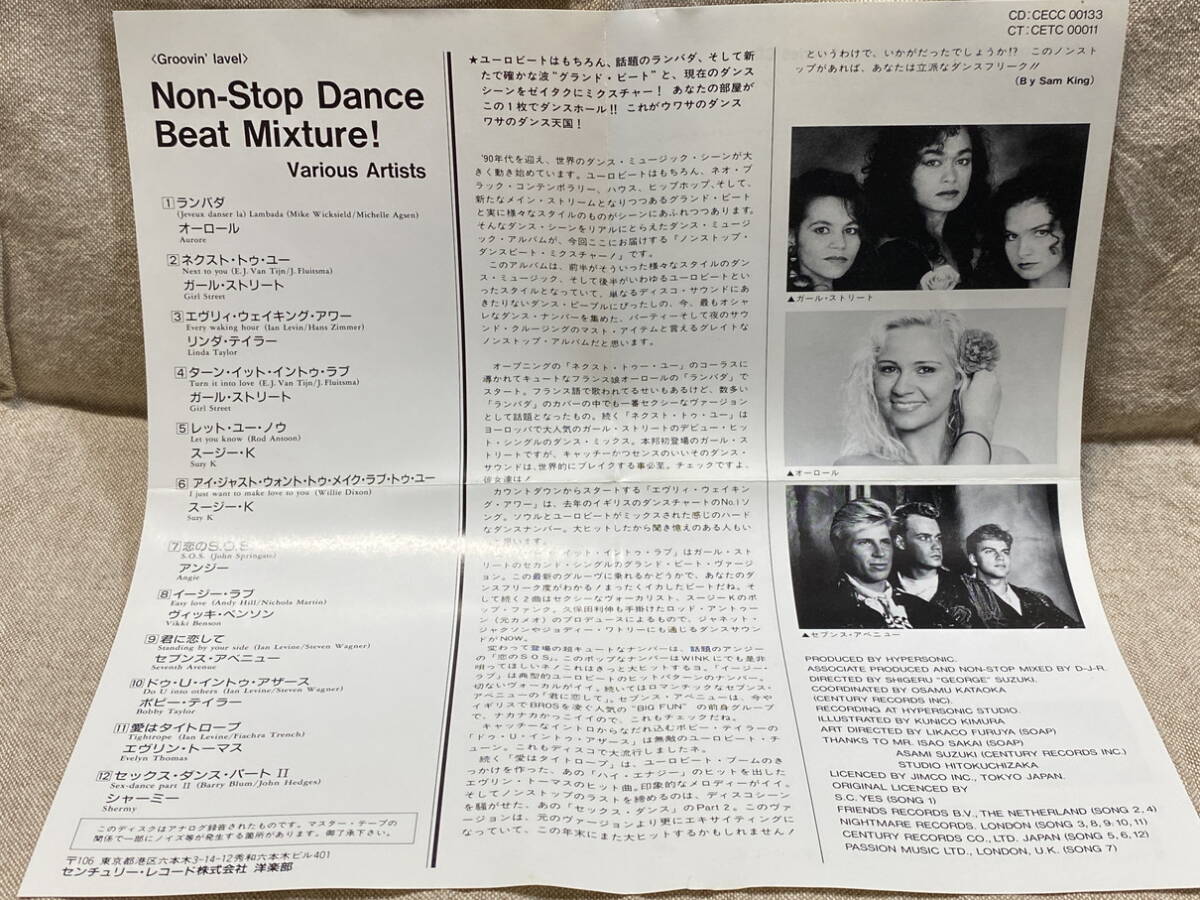 〈Groovin' lavel〉
Non-Stop Dance
Beat Mixture!
Various Artists
1 ランバダ
(Jeveux danser la) Lambada (Mike Wicksield/Michelle Agsen)
オーロール
Aurore
2 ネクスト・トゥ・ユー
Next to you (E.J. Van Tijn/J. Fluitsma)
ガール・ストリート
Girl Street
3 エヴリィ・ウェイキング・アワー
Every waking hour (Ian Levin/Hans Zimmer)
リンダ・テイラー
Linda Taylor
4 ターン・イット・イントゥ・ラブ
Turn it into love (E.J. Van Tijn/J. Fluitsma)
ガール・ストリート
Girl Street
5 レット・ユー・ノウ
Let you know (Rod Antoon)
スージー・K
Suzy K
6 アイ・ジャスト・ウォント・トゥ・メイク・ラブ・トゥ・ユー
I just want to make love to you (Willie Dixon)
スージー・K
Suzy K
7 恋のS.O.S.
S.O.S. (John Springate)
アンジー
Angie
8 イージー・ラブ
Easy love (Andy Hill/Nichols Martin)
ヴィッキ・ベンソン
Vikki Benson
9 君に恋して
Standing by your side (Ian Levine/Steven Wagner)
セブンス・アベニュー
Seventh Avenue
10 ドゥ・U・イントゥ・アザース
Do U into others (Ian Levine/Steven Wagner)
ボビー・テイラー
Bobby Taylor
11 愛はタイトロープ
Tightrope (Ian Levine/Fiachra Trench)
エヴリン・トーマス
Evelyn Thomas
12 セックス・ダンス・パート II
Sex-dance part II (Barry Blum/John Hedges)
シャーミー
Shermy
このディスクはアナログ録音されたものです。マスター・テープの
関係で一部にノイズ等が発生する箇所があります。御了承下さい。
〒106 東京都港区六本木3-14-12秀和六本木ビル401
センチュリー・レコード株式会社 洋楽部
★ユーロビートはもちろん、話題のランバダ、そして新
たで確かな波"グランド・ビート"と、現在のダンス
シーンをゼイタクにミクスチャー! あなたの部屋が
この1枚でダンスホール!! これがウワサのダンス
ワサのダンス天国!
'90年代を迎え、世界のダンス・ミュージック・シーンが大
きく動き始めています。ユーロビートはもちろん、ネオ・ブ
ラック・コンテンポラリー、ハウス、ヒップホップ、そして、
新たなメイン・ストリームとなりつつあるグランド・ビート
と実に様々なスタイルのものがシーンにあふれつつあります。
そんなダンス・シーンをリアルにとらえたダンス・ミュージ
ック・アルバムが、今回ここにお届けする『ノンストップ・
ダンスビート・ミクスチャー!』です。
このアルバムは、前半がそういった様々なスタイルのダン
ス・ミュージック、そして後半がいわゆるユーロビートとい
ったスタイルとなっていて、単なるディスコ・サウンドにあ
きたりないダンス・ピープルにぴったしの、今、最もオシャ
レなダンス・ナンバーを集めた、パーティーそして夜のサウ
ンド・クルージングのマスト・アイテムと言えるグレイトな
ノンストップ・アルバムだと思います。
オープニングの「ネクスト・トゥー・ユー」のコーラスに
導かれてキュートなフランス娘オーロールの「ランバダ」で
スタート。フランス語で歌われてるせいもあるけど、数多い
「ランバダ」のカバーの中でも一番セクシーなヴァージョン
として話題となったもの。続く「ネクスト・トゥ・ユー」は
ヨーロッパで大人気のガール・ストリートのデビュー・ヒッ
ト・シングルのダンス・ミックス。本邦初登場のガール・ス
トリートですが、キャッチーかつセンスのいいそのダンス・
サウンドは、世界的にブレイクする事必至。チェックですよ、
彼女達は!
カウントダウンからスタートする「エヴリィ・ウェイキン
グ・アワー」は、去年のイギリスのダンスチャートのNo.1ソ
ング。ソウルとユーロビートがミックスされた感じのハード
なダンスナンバー。大ヒットしたから聞き憶えのある人もい
思います。
イット・イントゥ・ラブ」はガール・スト
リートのセカンド・シングルのグランド・ビート・ヴァージ
ョン。この最新のグルーヴに乗れるかどうかで、あなたのダ
ンスフリーク度がわかる! まったくイカしたビートだね。そ
して続く2曲はセクシーなヴォーカリスト、スージーKのポ
ップ・ファンク。久保田利伸も手掛けたロッド・アントゥー
ン(元カメオ)のプロデュースによるもので、ジャネット・
ジャクソンやジョディー・ワトリーにも通じるダンスサウン
ドがNOW。
変わって登場の超キュートなナンバーは、話題のアンジー
の「恋のSOS」。このポップなナンバーはWINKにでも是非
唄ってほしいネ! これはきっと大ヒットするヨ。「イージー・
ラブ」は典型的ユーロビートのヒットパターンのナンバー。
切ないヴォーカルがイイ。続いてはロマンチックなセブンス・
アベニューの「君に恋して」。セブンス・アベニューは、今や
イギリスでBROSを凌ぐ人気の"BIG FUN"の前身グループ
で、ナカナカかっこイイので、これもチェックだね。
キャッチーなイントロからなだれ込むボビー・テイラーの
「ドゥ・U・イントゥ・アザース」は無敵のユーロビート・チ
ューン。これもディスコで大流行しましたネ。
続く「愛はタイトロープ」は、ユーロビート・ブームのき
っかけを作った、あの「ハイ・エナジー」のヒットを出した
エヴリン・トーマスのヒット曲。印象的なメロディーがイイ。
そしてノンストップのラストを締めるのは、ディスコシーン
を騒がせた、あの「セックス・ダンス」のPart 2。このヴァ
ージョンは、元のヴァージョンより更にエキサイティングに
なっていて、この年末にまた大ヒットするかもしれません!
CD:CECC 00133
CT:CETC 00011
というわけで、いかがだったでしょうか!? このノンスト
ップがあれば、あなたは立派なダンスフリーク!!
(By Sam King)
▲ガール・ストリート
▲オーロール
▲セブンス・アベニュー
PRODUCED BY HYPERSONIC.
ASSOCIATE PRODUCED AND NON-STOP MIXED BY D-J-R.
DIRECTED BY SHIGERU "GEORGE" SUZUKI.
COORDINATED BY OSAMU KATAOKA
(CENTURY RECORDS INC).
RECORDING AT HYPERSONIC STUDIO.
ILLUSTRATED BY KUNICO KIMURA
ART DIRECTED BY LIKACO FURUYA (SOAP)
THANKS TO MR. ISAO SAKAI (SOAP)
ASAMI SUZUKI (CENTURY RECORDS INC.)
STUDIO HITOKUCHIZAKA
LICENCED BY JIMCO INC., TOKYO JAPAN.
ORIGINAL LICENCED BY
S.C. YES (SONG 1)
FRIENDS RECORDS B.V., THE NETHERLAND (SONG 2, 4)
NIGHTMARE RECORDS. LONDON (SONG 3, 8, 9, 10, 11)
CENTURY RECORDS CO., LTD. JAPAN (SONG 5, 6, 12)
PASSION MUSIC LTD., LONDON, U.K. (SONG 7)